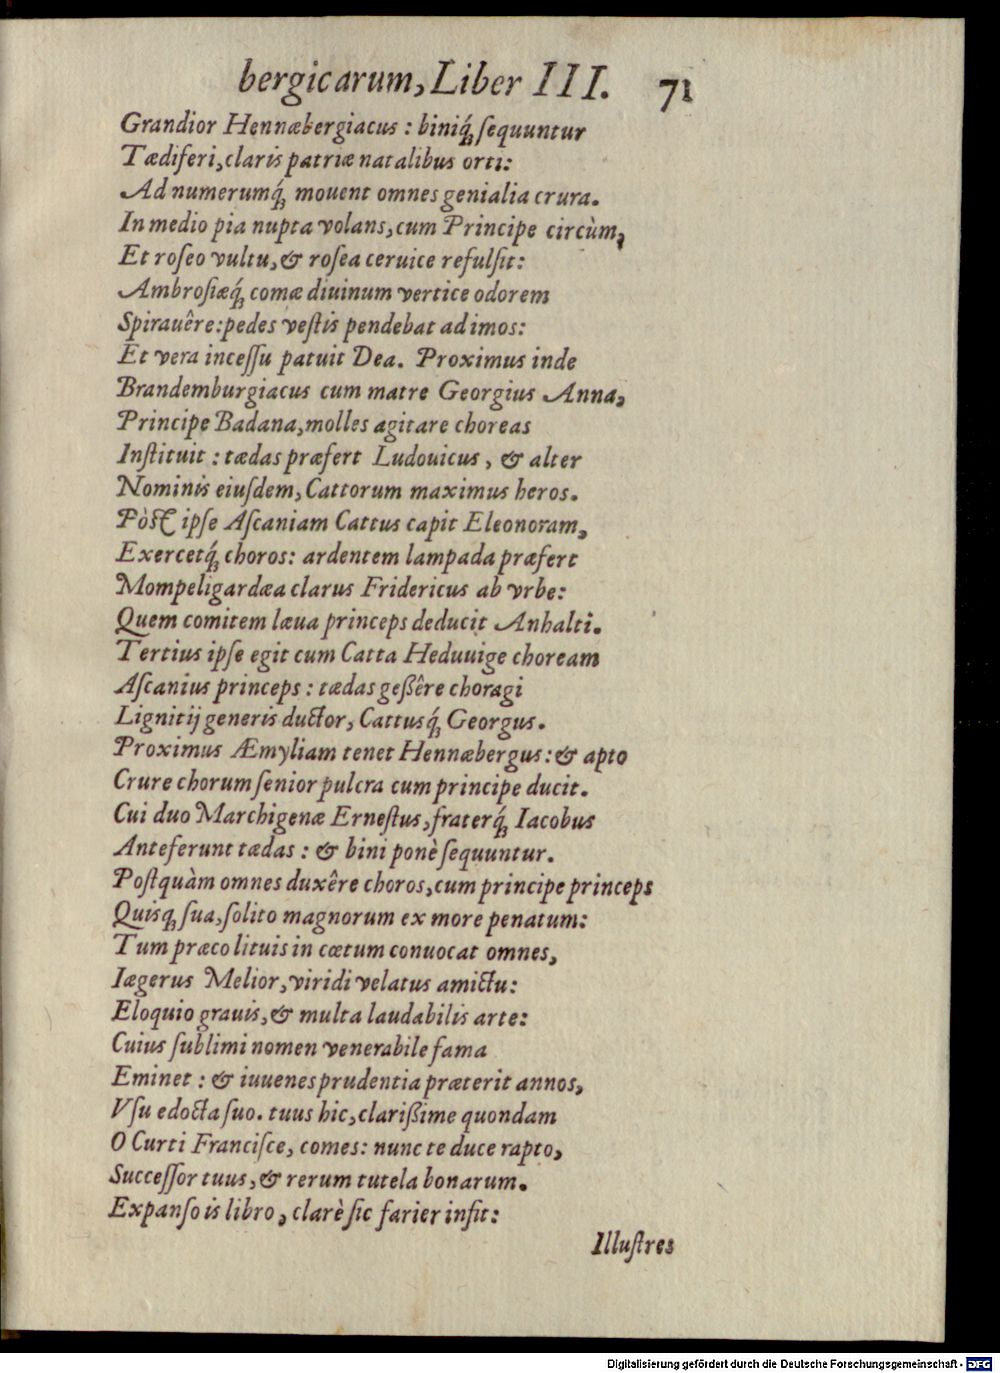 bergicarum, Liber III. 71
Grandior Hennæbergiacus : biniq́ꝫ ſequuntur
Tædiferi, claris patriæ natalibus orti:
Ad numerumq́ꝫ mouent omnes genialia crura.
In medio pia nupta volans, cum Principe circùm,
Et roſeo vultu, & roſea ceruice refulſit:
Ambroſiæq́ꝫ comæ diuinum vertice odorem
Spirauêre: pedes veſtis pendebat ad imos:
Et vera inceſſu patuit Dea. Proximus inde
Brandemburgiacus cum matre Georgius Anna,
Principe Badana, molles agitare choreas
Inſtituit : tædas præfert Ludouicus, & alter
Nominis eiuſdem, Cattorum maximus heros.
Pòſt ipſe Aſcaniam Cattus capit Eleonoram,
Exercetq́ꝫ choros: ardentem lampada præfert
Mompeligardæa clarus Fridericus ab vrbe:
Quem comitem læua princeps deducit Anhalti.
Tertius ipſe egit cum Catta Heduuige choream
Aſcanius princeps : tædas geßêre choragi
Lignitij generis ductor, Cattusq́ꝫ Georgus.
Proximus Æmyliam tenet Hennæbergus: & apto
Crure chorum ſenior pulcra cum principe ducit.
Cui duo Marchigenæ Erneſtus, fraterq́ꝫ Iacobus
Anteferunt tædas : & bini ponè ſequuntur.
Poſtquàm omnes duxêre choros, cum principe princeps
Quisqꝫ ſua, ſolito magnorum ex more penatum:
Tum præco lituis in cœtum conuocat omnes,
Iægerus Melior, viridi velatus amictu:
Eloquio grauis, & multa laudabilis arte:
Cuius ſublimi nomen venerabile fama
Eminet : & iuuenes prudentia præterit annos,
Vſu edocta ſuo. tuus hic, clarißime quondam
O Curti Franciſce, comes: nunc te duce rapto,
Succeſſor tuus, & rerum tutela bonarum.
Expanſo is libro, clarè ſic farier inſit:
Illuſtres
Digitalisierung gefördert durch die Deutsche Forschungsgemeinschaft - DFG